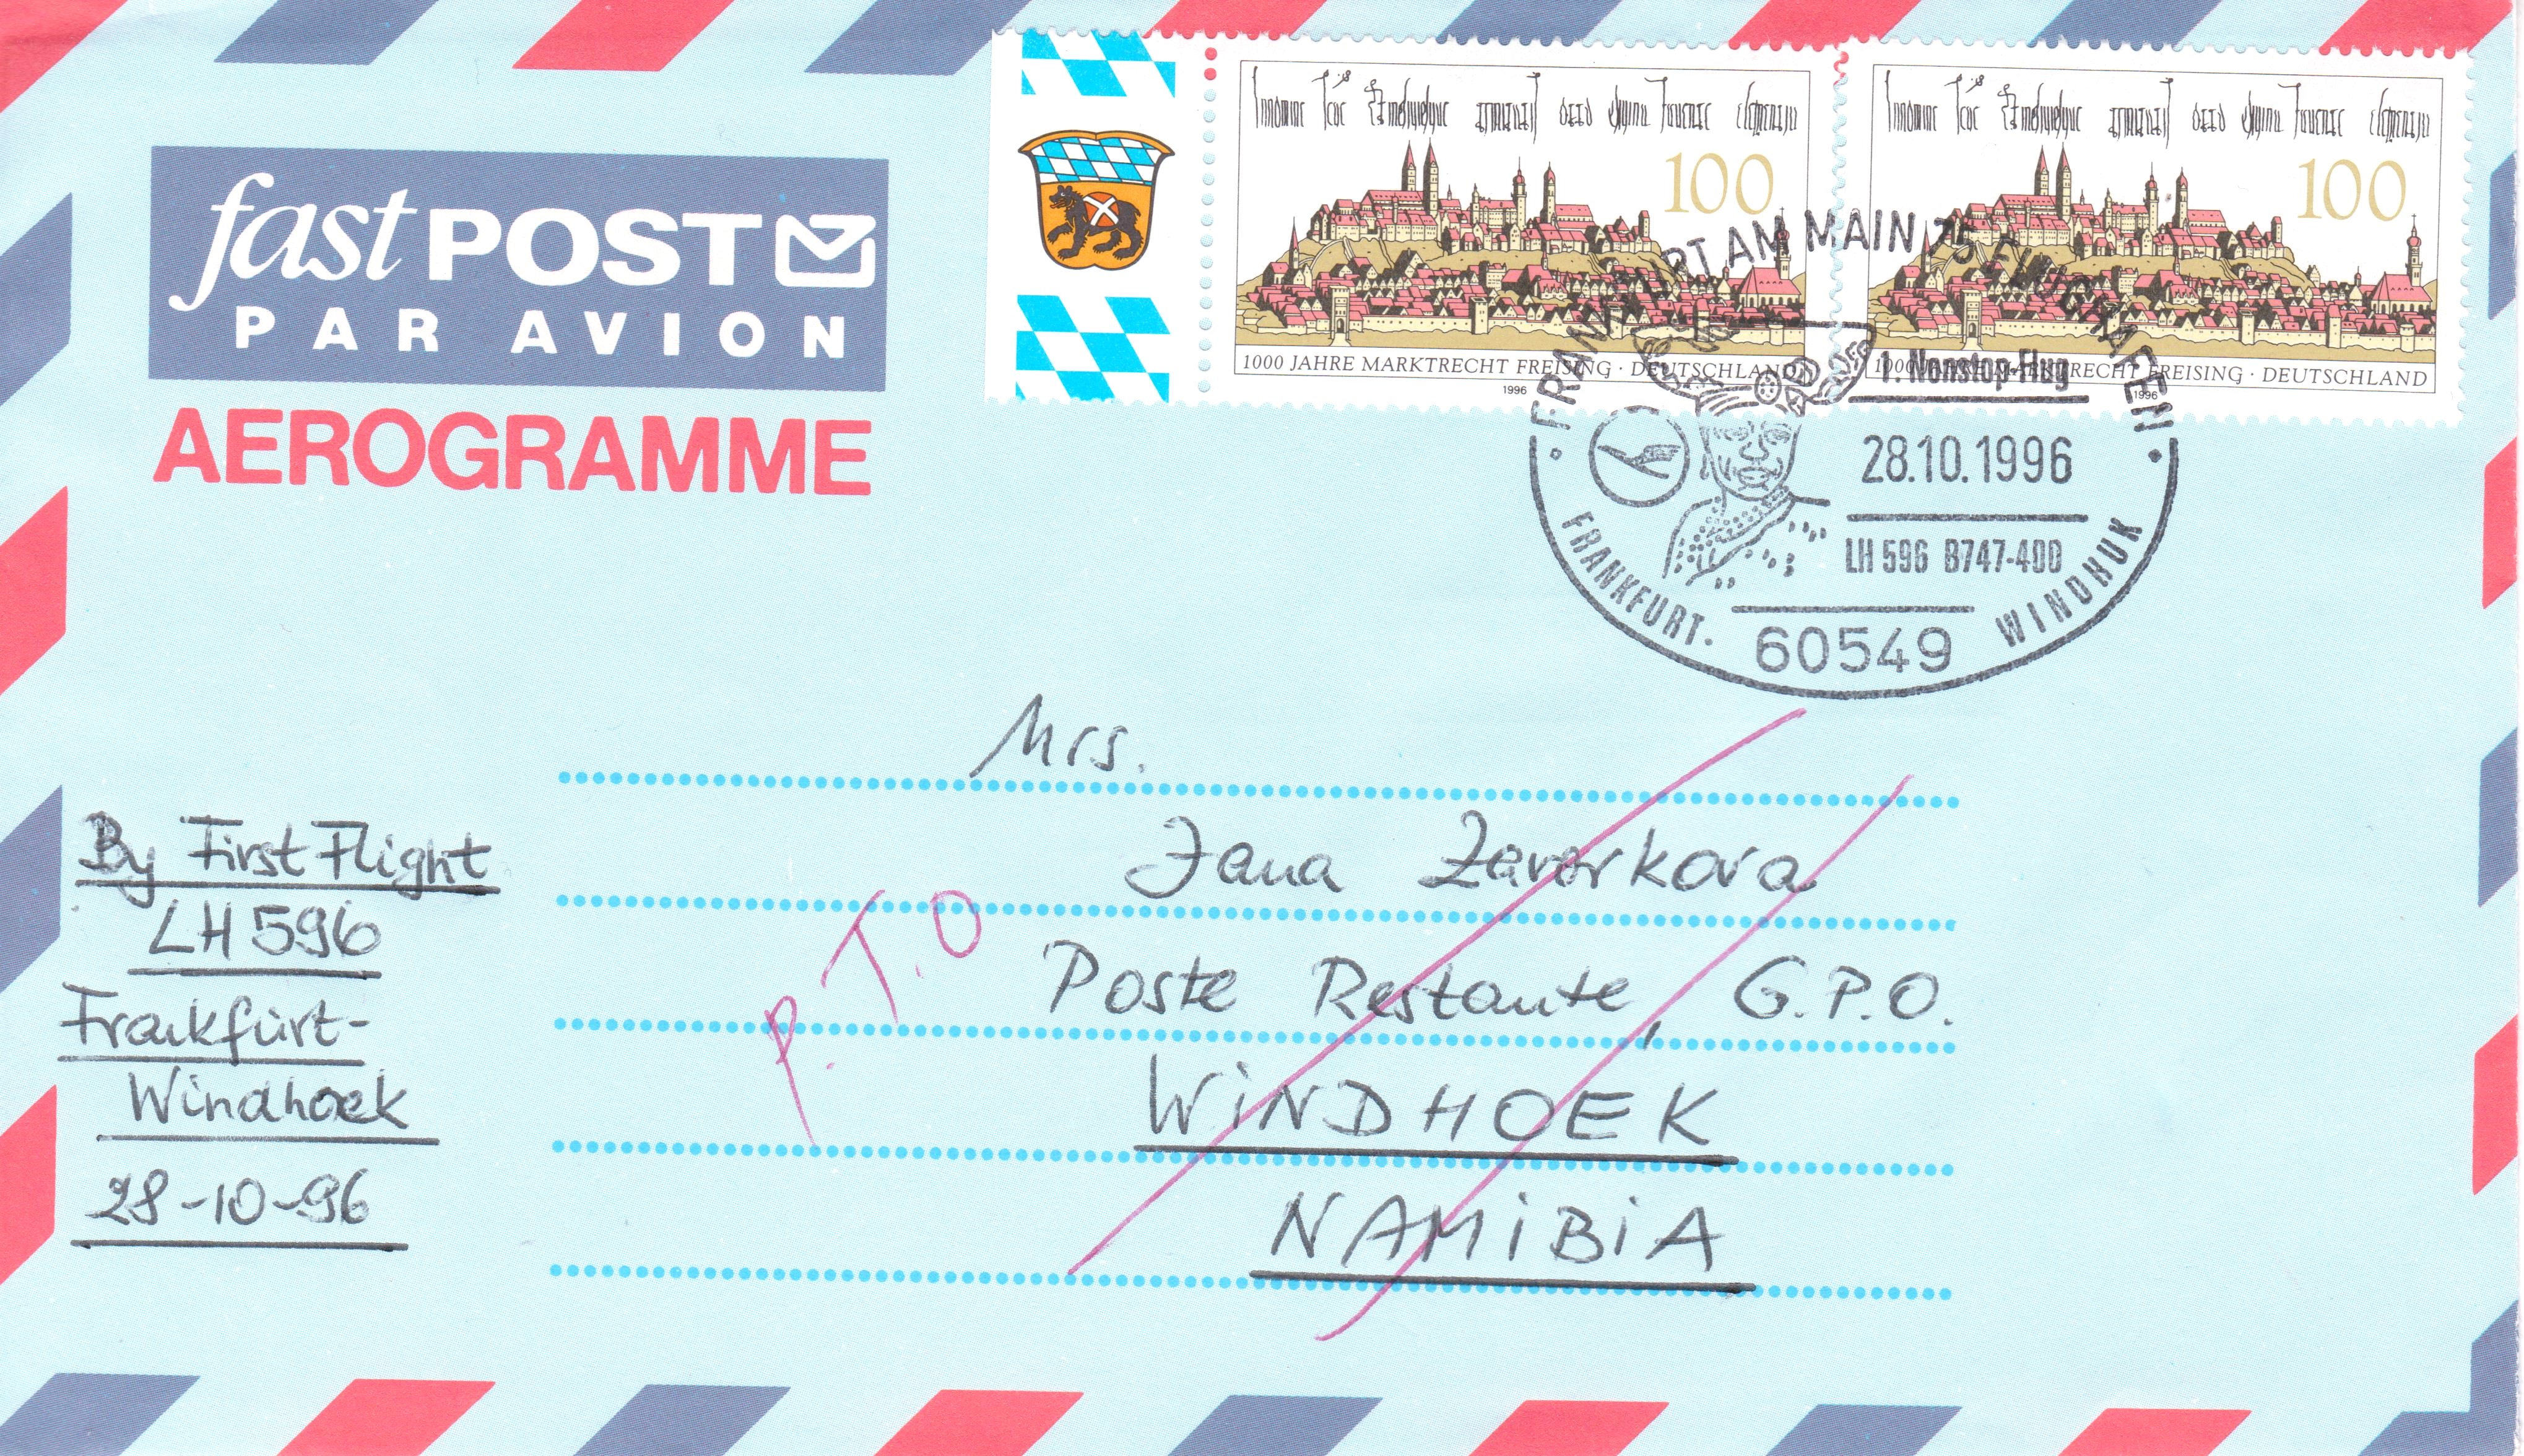 fast POST
PAR AVION
AEROGRAMME
100
1000 JAHRE MARKTRECHT FREISING · DEUTSCHLAND
1996
100
1000 JAHRE MARKTRECHT FREISING · DEUTSCHLAND
1996
FRANKFURT AM MAIN 75 FLUGHAFEN
1. Nonstop-Flug
28.10.1996
LH 596 B747-400
FRANKFURT. WINDHUK
60549
Mrs.
Jana Zavorkova
Poste Restante, G.P.O.
WiNDHOEK
NAMiBiA
P.T.O
By First Flight
LH 596
Frankfurt-
Windhoek
28-10-96